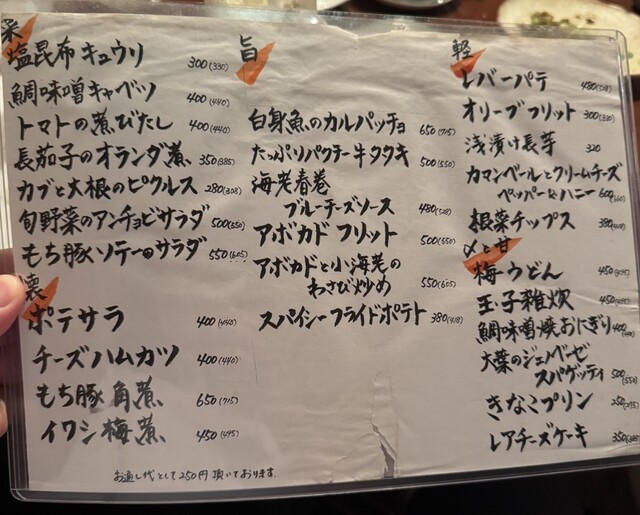 菜
塩昆布キュウリ 300(330)
鯛味噌キャベツ 400(440)
トマトの煮びたし 400(440)
長茄子のオランダ煮 350(385)
カブと大根のピクルス 280(308)
旬野菜のアンチョビサラダ 500(550)
もち豚ソテーのサラダ 550(605)
懐
ポテサラ 400(440)
チーズハムカツ 400(440)
もち豚角煮 650(715)
イワシ梅煮 450(495)
旨
白身魚のカルパッチョ 650(715)
たっぷりパクチー牛タタキ 500(550)
海老春巻
ブルーチーズソース 480(528)
アボカドフリット 500(550)
アボカドと小海老の
わさび炒め 550(605)
スパイシーフライドポテト 380(418)
軽
レバーパテ 480(528)
オリーブフリット 300(330)
浅漬け長芋 320
カマンベールとクリームチーズ
ペッパー&ハニー 600(660)
根菜チップス 380(418)
〆と甘
梅うどん 450(495)
玉子雑炊 450(495)
鯛味噌焼おにぎり 400(440)
大葉のジェノベーゼ
スパゲッティ 500(550)
きなこプリン 250(275)
レアチーズケーキ 350(385)
お通し代として250円頂いております。